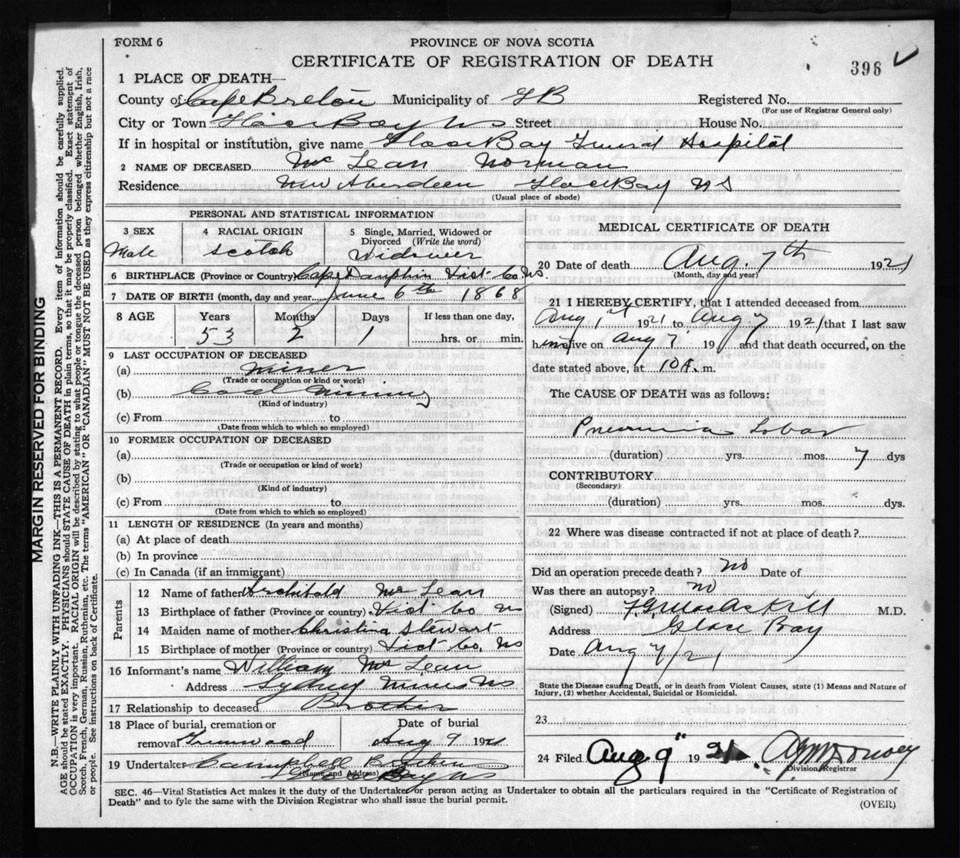 FORM 6
PROVINCE OF NOVA SCOTIA
CERTIFICATE OF REGISTRATION OF DEATH
396
1 PLACE OF DEATH—
County of Cape Breton Municipality of G B Registered No.
(For use of Registrar General only)
City or Town Glace Bay NS Street House No.
If in hospital or institution, give name Glace Bay General Hospital
2 NAME OF DECEASED Mc Lean Norman
Residence New Aberdeen Glace Bay N S
(Usual place of abode)
PERSONAL AND STATISTICAL INFORMATION
3 SEX 4 RACIAL ORIGIN 5 Single, Married, Widowed or Divorced (Write the word)
Male Scotch Widower
6 BIRTHPLACE (Province or Country) Cape Dauphin Vict. Co NS
7 DATE OF BIRTH (month, day and year) June 6th 1868
8 AGE Years Months Days If less than one day,
53 2 1 hrs. or min.
9 LAST OCCUPATION OF DECEASED
(a) Miner
(Trade or occupation or kind or work)
(b) Coal Mining
(Kind of industry)
(c) From to
(Date from which to which so employed)
10 FORMER OCCUPATION OF DECEASED
(a)
(Trade or occupation or kind of work)
(b)
(Kind of industry)
(c) From to
(Date from which to which so employed)
11 LENGTH OF RESIDENCE (In years and months)
(a) At place of death
(b) In province
(c) In Canada (if an immigrant)
Parents
12 Name of father Archibald Mc Lean
13 Birthplace of father (Province or country) Vict Co NS
14 Maiden name of mother Christina Stewart
15 Birthplace of mother (Province or country) Vict Co. NS
16 Informant's name William Mc Lean
Address Sydney Mines NS
17 Relationship to deceased Brother
18 Place of burial, cremation or removal Greenwood
Date of burial
Aug 9 1921
19 Undertaker Campbell
(Name and Address) Glace Bay NS
MEDICAL CERTIFICATE OF DEATH
20 Date of death Aug. 7th 1921
(Month, day and year)
21 I HEREBY CERTIFY, that I attended deceased from
Aug 1st 1921 to Aug 7 1921 that I last saw
him alive on Aug 7 19 and that death occurred, on the
date stated above, at 10 A. m.
The CAUSE OF DEATH was as follows:
Pneumonia Lobar
(duration) yrs. mos. 7 dys
CONTRIBUTORY
(Secondary)
(duration) yrs. mos. dys.
22 Where was disease contracted if not at place of death?
Did an operation precede death? no Date of
Was there an autopsy? no
(Signed) MacAskill M.D.
Address Glace Bay
Date Aug 7/21
State the Disease causing Death, or in death from Violent Causes, state (1) Means and Nature of
Injury, (2) whether Accidental, Suicidal or Homicidal.
23
24 Filed Aug 9" 1921
Division Registrar
SEC. 46—Vital Statistics Act makes it the duty of the Undertaker or person acting as Undertaker to obtain all the particulars required in the "Certificate of Registration of
Death" and to fyle the same with the Division Registrar who shall issue the burial permit.
(OVER)
MARGIN RESERVED FOR BINDING
N.B.—WRITE PLAINLY WITH UNFADING INK—THIS IS A PERMANENT RECORD. Every item of information should be carefully supplied.
AGE should be stated EXACTLY. PHYSICIANS should STATE CAUSE OF DEATH in plain terms, so that it may be properly classified. Exact statement of
OCCUPATION is very important. RACIAL ORIGIN will be described by stating to what people or tongue the deceased person belonged whether English, Irish,
Scotch, French, German, Russian, Ruthenian, etc. The terms "AMERICAN" OR "CANADIAN" MUST NOT BE USED as they express citizenship but not a race
or people. See instructions on back of Certificate.